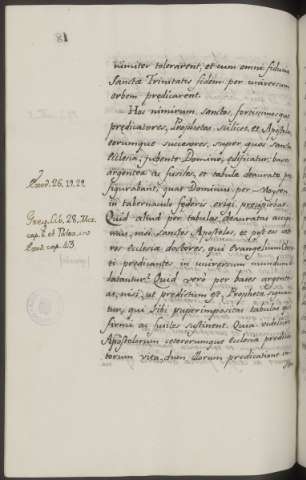 18
nimiter tolerarent, et cum omni fiducia
Sanctæ Trinitatis fidem per universum
orbem predicarent.
Hos nimirum, sanctos, fortissimosque
predicatores, Prophetas scilicet, et Apostolos
eorumque successores, super quos sancta
Ecclesia, jubente Domino, edificatur, bases
argenteæ ac fusiles, et tabulæ deauratæ præ
figurabant, quas Dominus per Moysen
in tabernaculo fœderis erigi præcipiebat.
Quid aliud per tabulas deauratas accipi
mus, nisi sanctos Apostolos, et post eos cæte
ros ecclesiæ doctores, qui Evangelium Christi
predicantes in universum mundum
dilatantur? Quid verò per bases argente
as, nisi, ut predictum est, Prophetæ signan
tur, qui sibi superimpositas tabulas ipsi
firmi ac fusiles sustinent. Quia videlicet
Apostolorum ceterorumque ecclesiæ predica
torum vita, dum illorum predicatione
Exod. 26, 19, 29
Greg. Lib. 28,
cap. 2 et Pater.
Exod cap. 43